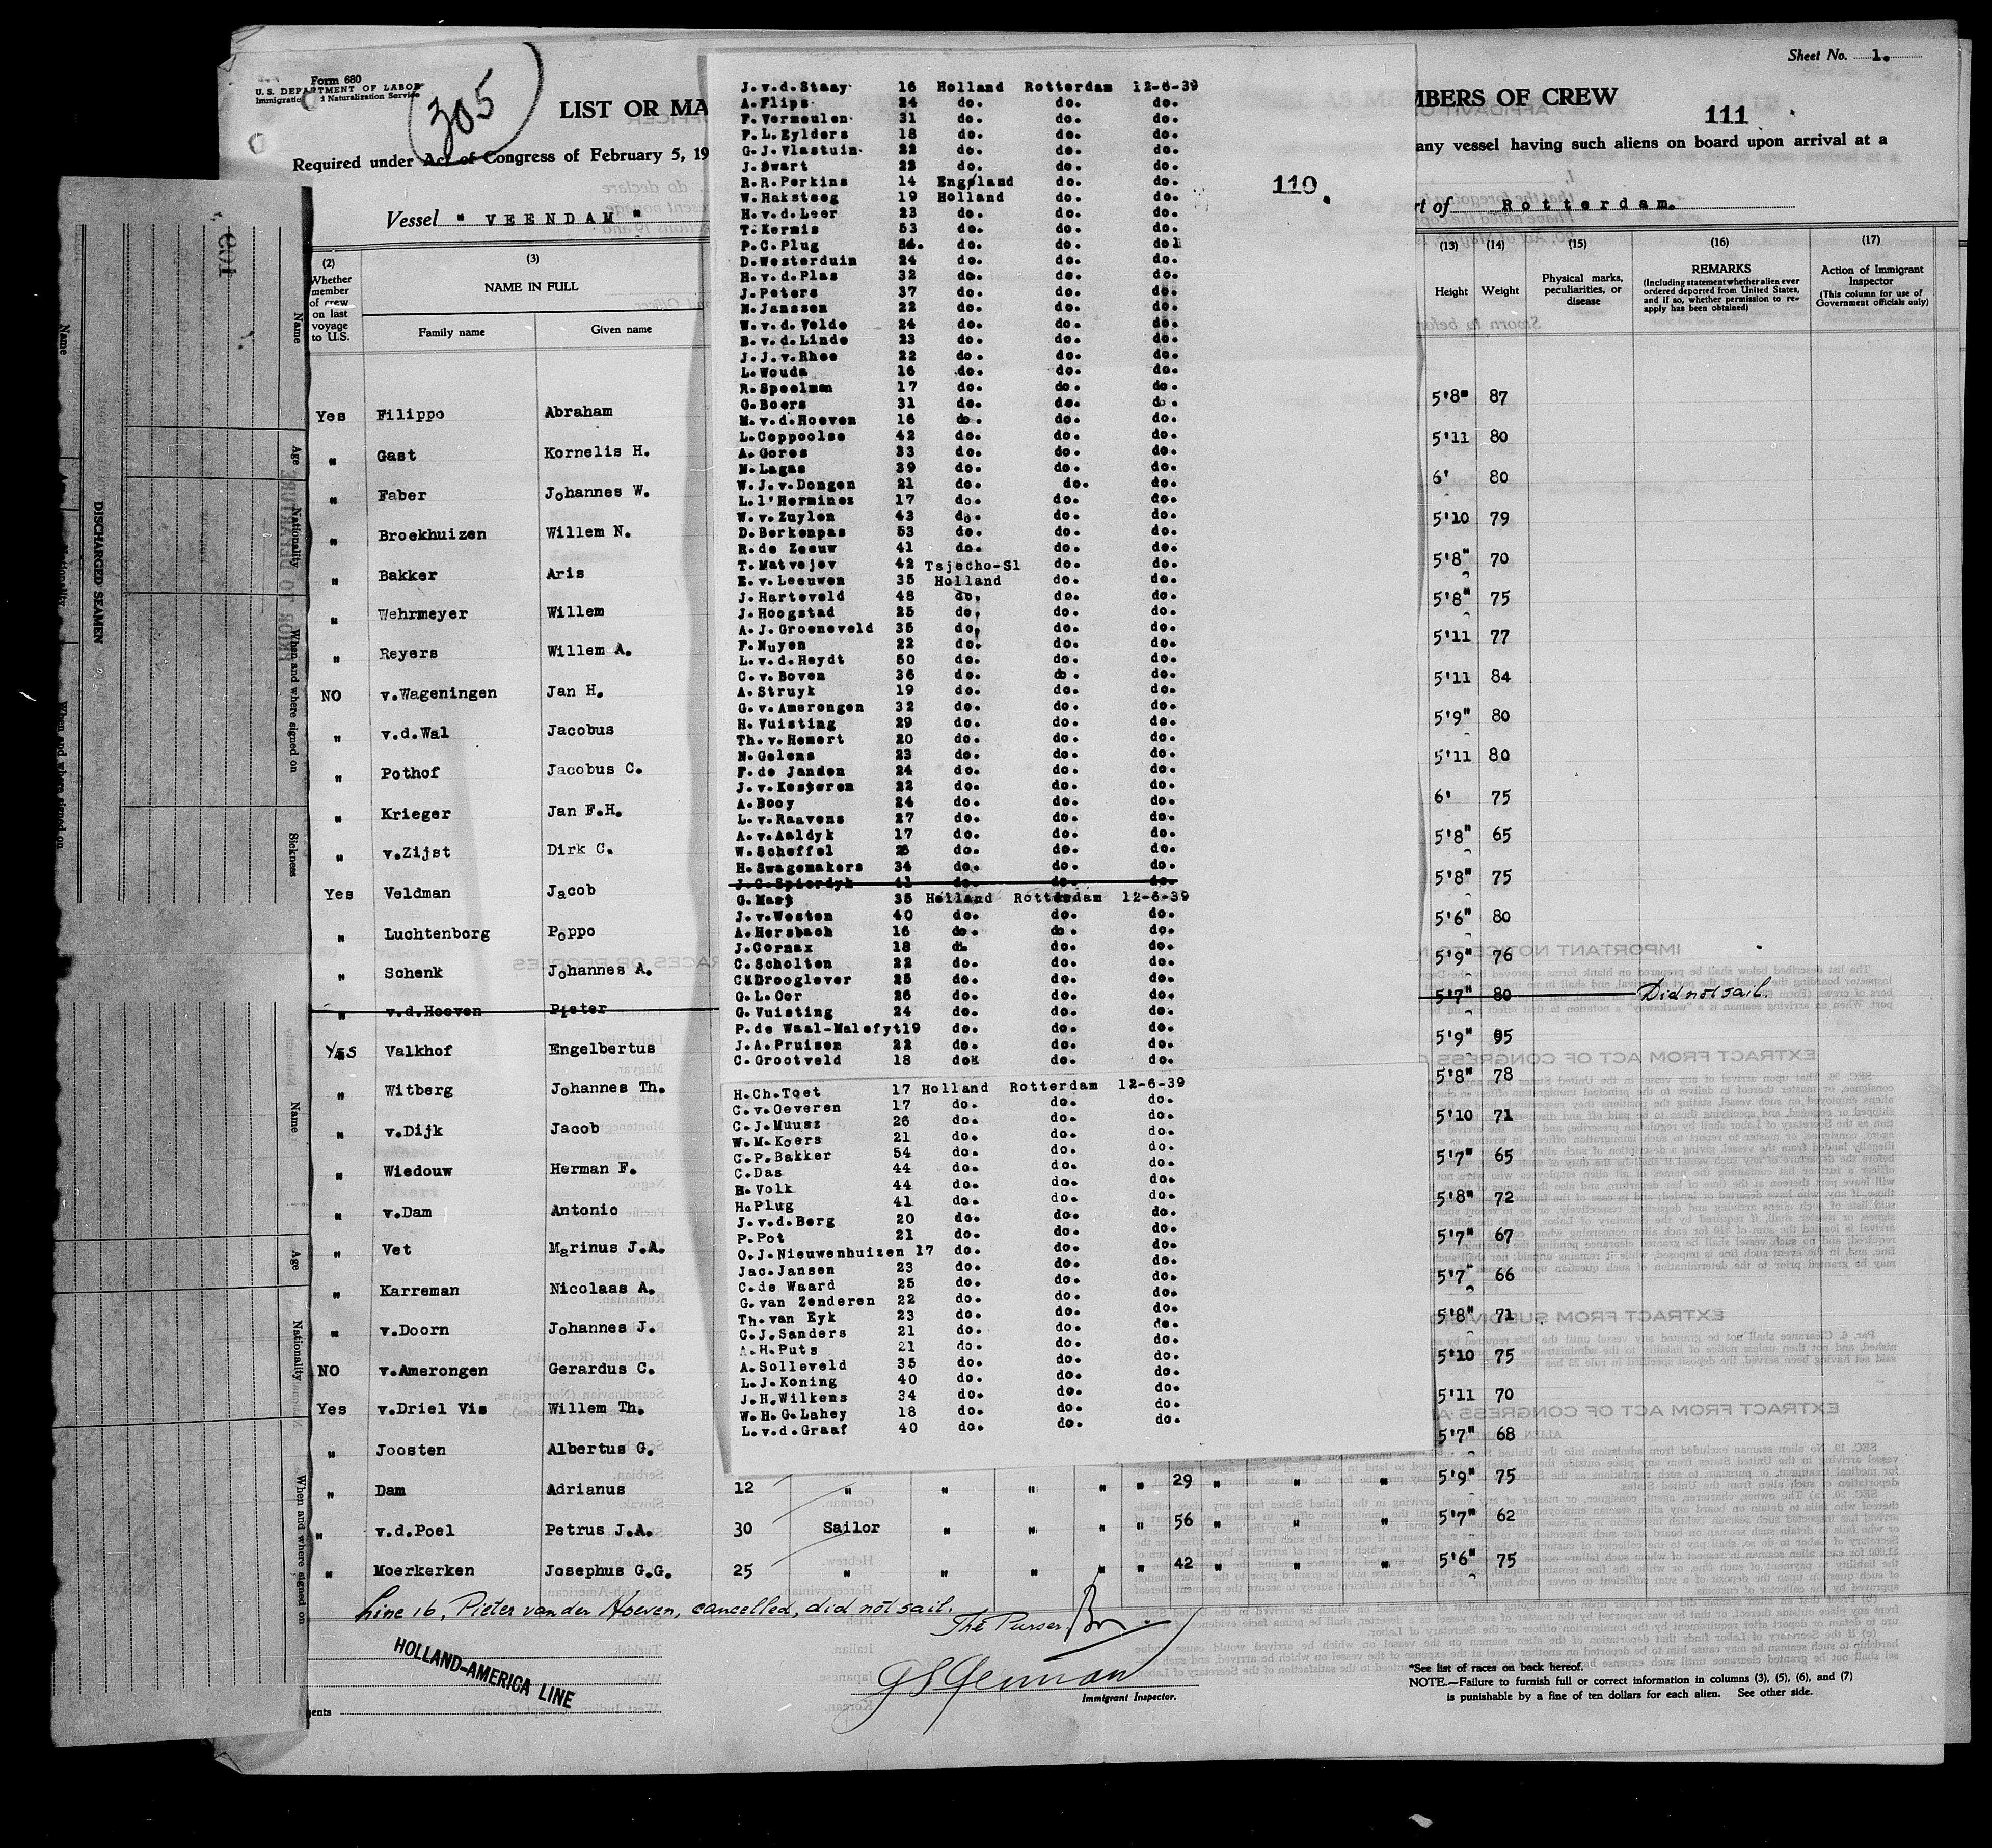 Form 680
U.S. DEPARTMENT OF LABOR
Immigration and Naturalization Service
305
Sheet No. 1.
LIST OR MA
MBERS OF CREW
111
Required under Act of Congress of February 5, 19
any vessel having such aliens on board upon arrival at a
110
Vessel " VEENDAM "
rt of Rotterdam.
(2) (3) (13) (14) (15) (16) (17)
Whether member of crew on last voyage to U.S.
NAME IN FULL
Family name Given name
Height Weight
Physical marks, peculiarities, or disease
REMARKS
(Including statement whether alien ever ordered deported from United States, and if so, whether permission to re-apply has been obtained)
Action of Immigrant Inspector
(This column for use of Government officials only)
Yes Filippo Abraham 5'8" 87
" Gast Kornelis H. 5'11 80
" Faber Johannes W. 6' 80
" Broekhuizen Willem N. 5'10 79
" Bakker Aris 5'8" 70
" Wehrmeyer Willem 5'8" 75
" Reyers Willem A. 5'11 77
NO v.Wageningen Jan H. 5'11 84
" v.d.Wal Jacobus 5'9" 80
" Pothof Jacobus C. 5'11 80
" Krieger Jan F.H. 6' 75
" v.Zijst Dirk C. 5'8" 65
Yes Veldman Jacob 5'8" 75
" Luchtenborg Poppo 5'6" 80
" Schenk Johannes A. 5'9" 76
" v.d.Hoeven Pieter 5'7" 80 Did not sail.
Yes Valkhof Engelbertus 5'9" 95
" Witberg Johannes Th. 5'8" 78
" v.Dijk Jacob 5'10 71
" Wiedouw Herman F. 5'7" 65
" v.Dam Antonio 5'8" 72
" Vet Marinus J.A. 5'7" 67
" Karreman Nicolaas A. 5'7" 66
" v.Doorn Johannes J. 5'8" 71
NO v.Amerongen Gerardus C. 5'10 75
Yes v.Driel Vis Willem Th. 5'11 70
" Joosten Albertus G. 5'7" 68
" Dam Adrianus 12 " " " " " 29 " " " 5'9" 75
" v.d.Poel Petrus J.A. 30 Sailor " " " " 56 " " " 5'7" 62
" Moerkerken Josephus G.G. 25 " " " " " 42 " " " 5'6" 75
J.v.d.Staay 16 Holland Rotterdam 12-6-39
A.Flips 24 do. do. do.
F.Vermeulen 31 do. do. do.
F.L.Eylders 18 do. do. do.
G.J.Vlastuin 22 do. do. do.
J.Swart 23 do. do. do.
R.R.Perkins 14 England do. do.
W.Haksteeg 19 Holland do. do.
H.v.d.Leer 23 do. do. do.
T.Kermis 53 do. do. do.
P.C.Plug do. do. do
D.Westerduin 24 do. do. do.
H.v.d.Plas 32 do. do. do.
J.Peters 37 do. do. do.
N.Janssen 22 do. do. do.
W.v.d.Velde 24 do. do. do.
B.v.d.Linde 23 do. do. do.
J.J.v.Rhee 22 do. do. do.
L.Wouda 16 do. do. do.
R.Speelman 17 do. do. do.
G.Boers 31 do. do. do.
M.v.d.Hoeven 16 do. do. do.
L.Coppoolse 42 do. do. do.
A.Gores 33 do. do. do.
N.Lagas 39 do. do. do.
W.J.v.Dongen 21 do. do. do.
L.l'Herminez 17 do. do. do.
W.v.Zuylen 43 do. do. do.
D.Berkenpas 53 do. do. do.
R.de Zeeuw 41 do. do. do.
T.Matvejev 42 Tsjecho-Sl do. do.
E.v.Leeuwen 35 Holland do. do.
J.Harteveld 48 do. do. do.
J.Hoogstad 25 do. do. do.
A.J.Groeneveld 35 do. do. do.
F.Nuyen 22 do. do. do.
L.v.d.Heydt 50 do. do. do.
C.v.Boven 36 do. do. do.
A.Struyk 19 do. do. do.
G.v.Amerongen 32 do. do. do.
H.Vuisting 29 do. do. do.
Th.v.Hemert 20 do. do. do.
N.Gelens 23 do. do. do.
F.de Janden 24 do. do. do.
J.v.Kesteren 22 do. do. do.
A.Booy 24 do. do. do.
L.v.Raavens 27 do. do. do.
A.v.Aaldyk 17 do. do. do.
W.Scheffel do. do. do.
H.Swagemakers 34 do. do. do.
J.C.Spierdyk 41 do. do. do.
G.Mast 35 Holland Rotterdam 12-6-39
J.v.Westen 40 do. do. do.
A.Hersbach 16 do. do. do.
J.Cornax 18 do. do. do.
C.Scholten 22 do. do. do.
Drooglever 25 do. do. do.
G.L.Oor 26 do. do. do.
G.Vuisting 24 do. do. do.
P.de Waal-Malefyt19 do. do. do.
J.A.Pruisen 22 do. do. do.
C.Grootveld 18 do do. do.
H.Ch.Toet 17 Holland Rotterdam 12-6-39
C.v.Oeveren 17 do. do. do.
C.J.Muusz 26 do. do. do.
W.M.Koers 21 do. do. do.
C.P.Bakker 54 do. do. do.
C.Das 44 do. do. do.
H.Volk 44 do. do. do.
H.Plug 41 do. do. do.
J.v.d.Berg 20 do. do. do.
P.Pot 21 do. do. do.
O.J.Nieuwenhuizen 17 do. do. do.
Jac.Jansen 23 do. do. do.
C.de Waard 25 do. do. do.
G.van Zenderen 22 do. do. do.
Th.van Eyk 23 do. do. do.
C.J.Sanders 21 do. do. do.
A.H.Puts 21 do. do. do.
A.Solleveld 35 do. do. do.
L.J.Koning 40 do. do. do.
J.H.Wilkens 34 do. do. do.
W.H.G.Lahey 18 do. do. do.
L.v.d.Graaf 40 do. do. do.
Line 16, Pieter van der Hoeven, cancelled, did not sail.
The Purser
HOLLAND-AMERICA LINE
gents
Immigrant Inspector.
*See list of races on back hereof.
NOTE.—Failure to furnish full or correct information in columns (3), (5), (6), and (7)
is punishable by a fine of ten dollars for each alien. See other side.
DISCHARGED SEAMEN
PRIOR TO DEPARTURE
Name
Age
Nationality
When and where signed on
Sickness
Name
Age
Nationality
When and where signed on